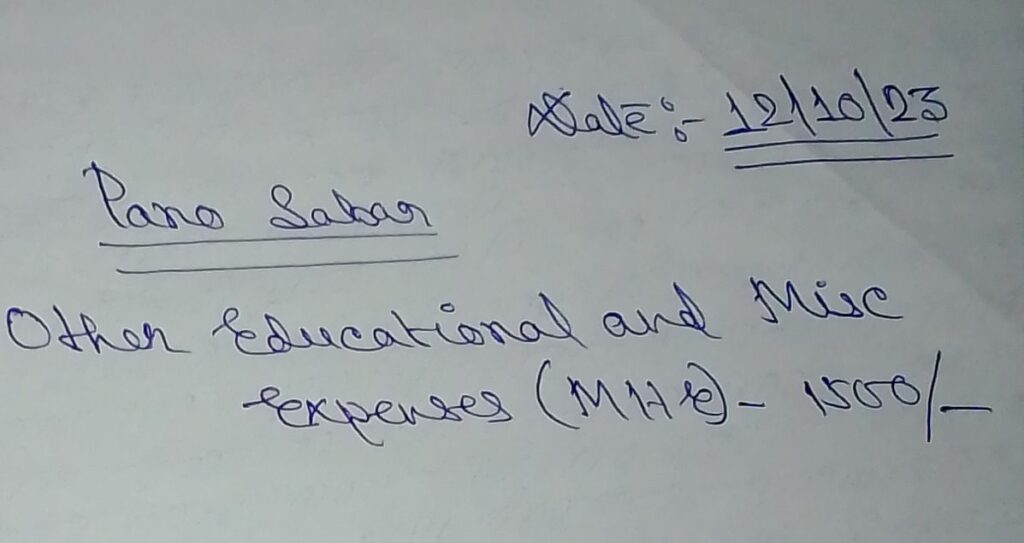 Date :- 12/10/23
Pano Sabar
Other Educational and Misc
expenses (MHE) - 1500/-